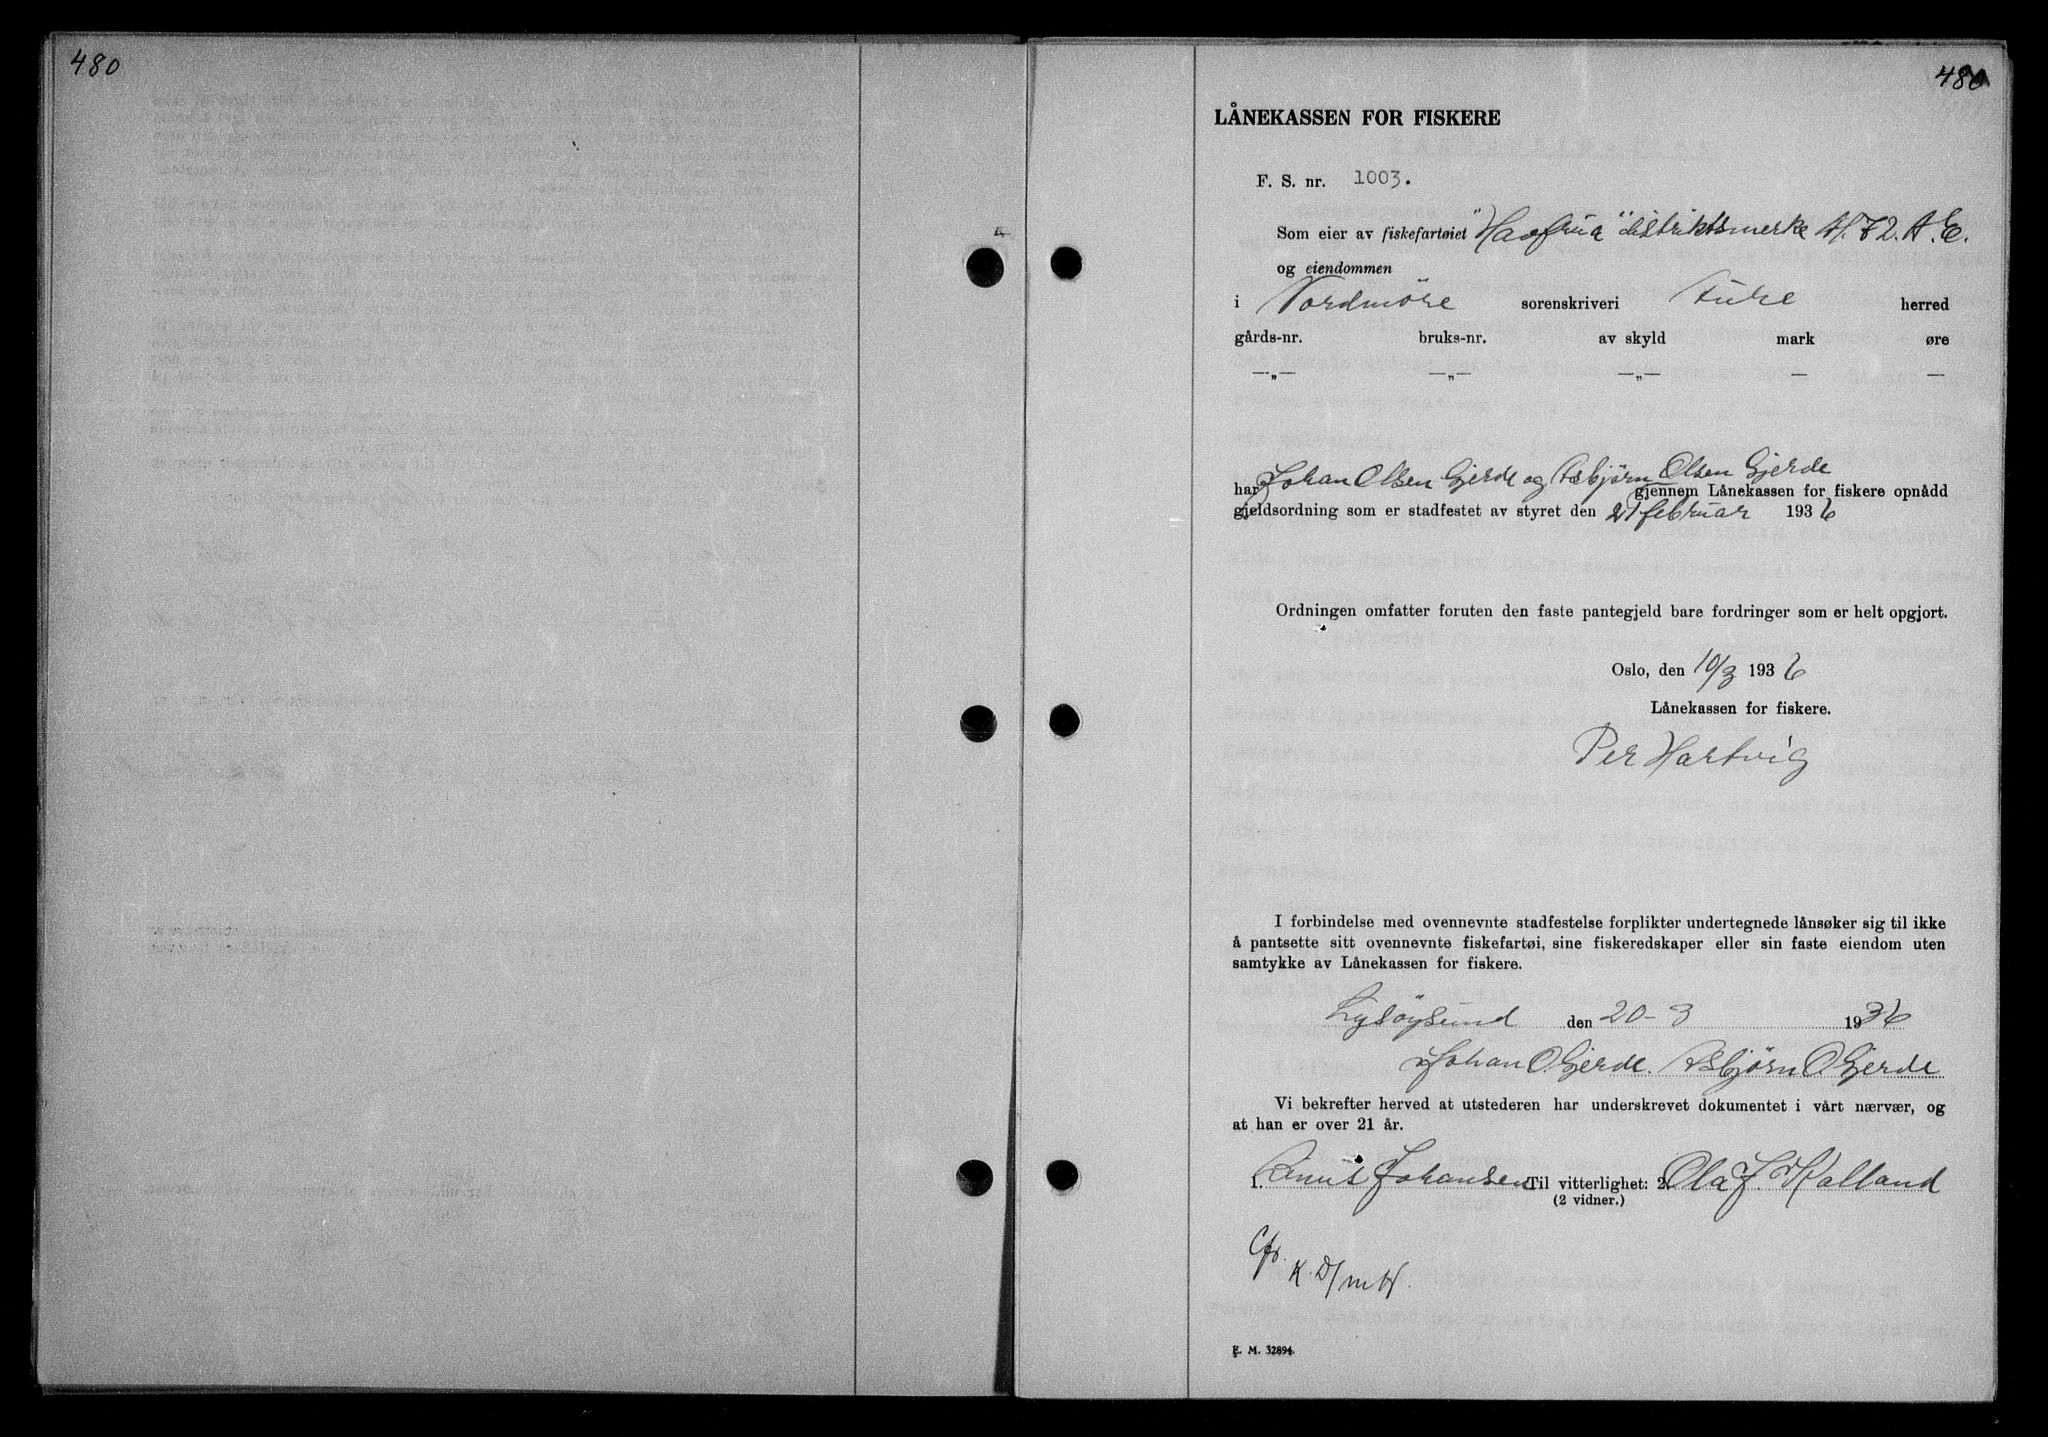 480
480
LÅNEKASSEN FOR FISKERE
F. S. nr. 1003.
Som eier av fiskefartøiet "Havfrua" distriktsmerke M.72.A.E.
og eiendommen
i Nordmöre sorenskriveri herred
gårds-nr. bruks-nr. av skyld mark øre
—„— —„— —„— — —
Johan Olsen Gjerde og Asbjørn Olsen Gjerde
har gjennem Lånekassen for fiskere opnådd
gjeldsordning som er stadfestet av styret den 21 februar 1936
Ordningen omfatter foruten den faste pantegjeld bare fordringer som er helt opgjort.
Oslo, den 10/3 1936
Lånekassen for fiskere.
Per Hartvig
I forbindelse med ovennevnte stadfestelse forplikter undertegnede lånsøker sig til ikke
å pantsette sitt ovennevnte fiskefartøi, sine fiskeredskaper eller sin faste eiendom uten
samtykke av Lånekassen for fiskere.
Lysöysund den 20-3 1936
Johan O. Gjerde. Asbjørn O Gjerde
Vi bekrefter herved at utstederen har underskrevet dokumentet i vårt nærvær, og
at han er over 21 år.
1. Johansen Til vitterlighet: 2. Ola J. Holland
(2 vidner.)
Cfr.
K. D/mH.
E. M. 32894.